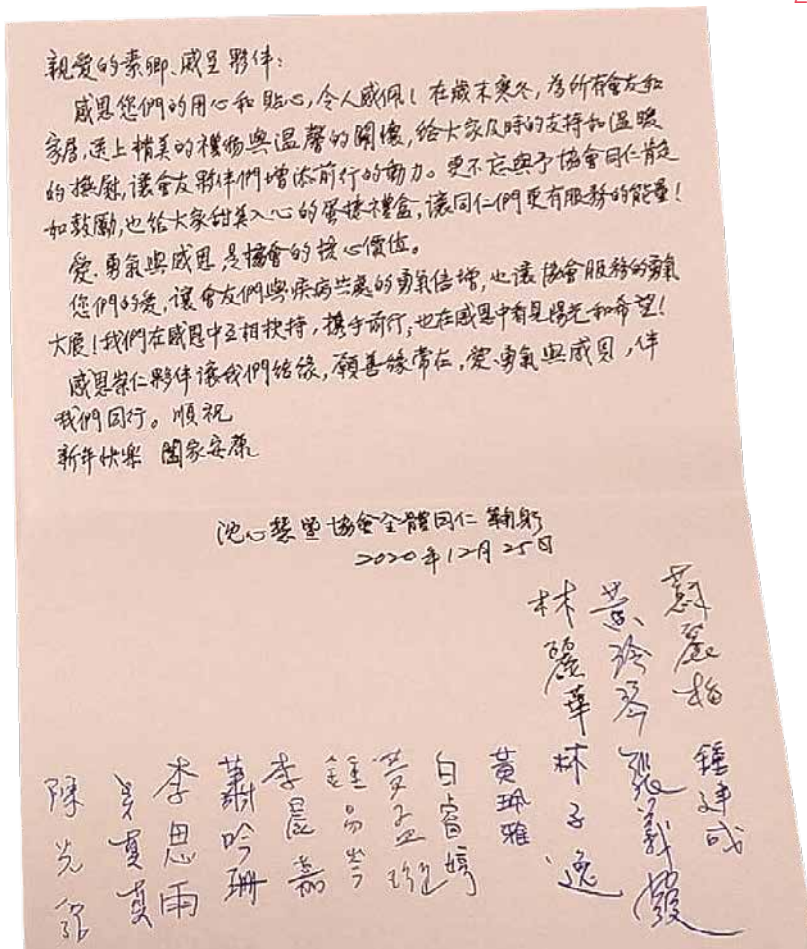 親愛的素卿、威呈夥伴：
感恩您們的用心和貼心，令人感佩！在歲末寒冬，為所有會友和
家屬，送上精美的禮物與溫馨的關懷，給大家及時的支持和溫暖
的撫慰，讓會友夥伴們增添前行的動力。更不忘與予協會同仁肯定
和鼓勵，也給大家甜美入心的蛋捲禮盒，讓同仁們更有服務的能量！
愛、勇氣與感恩，是協會的核心價值。
您們的愛，讓會友們與疾病共處的勇氣倍增，也讓協會服務的勇氣
大展！我們在感恩中互相扶持，攜手前行，也在感恩中看見陽光和希望！
感恩崇仁夥伴讓我們結緣，願善緣常在，愛、勇氣與感恩，伴
我們同行。順祝
新年快樂 闔家安康
協會全體同仁 鞠躬
2020年12月25日
林麗華 黃玲琴
陳 李思雨 蕭吟珊 李晨嘉 鍾易岑 黃孟 白睿婷 黃珮雅 林子逸 張義 鍾建成